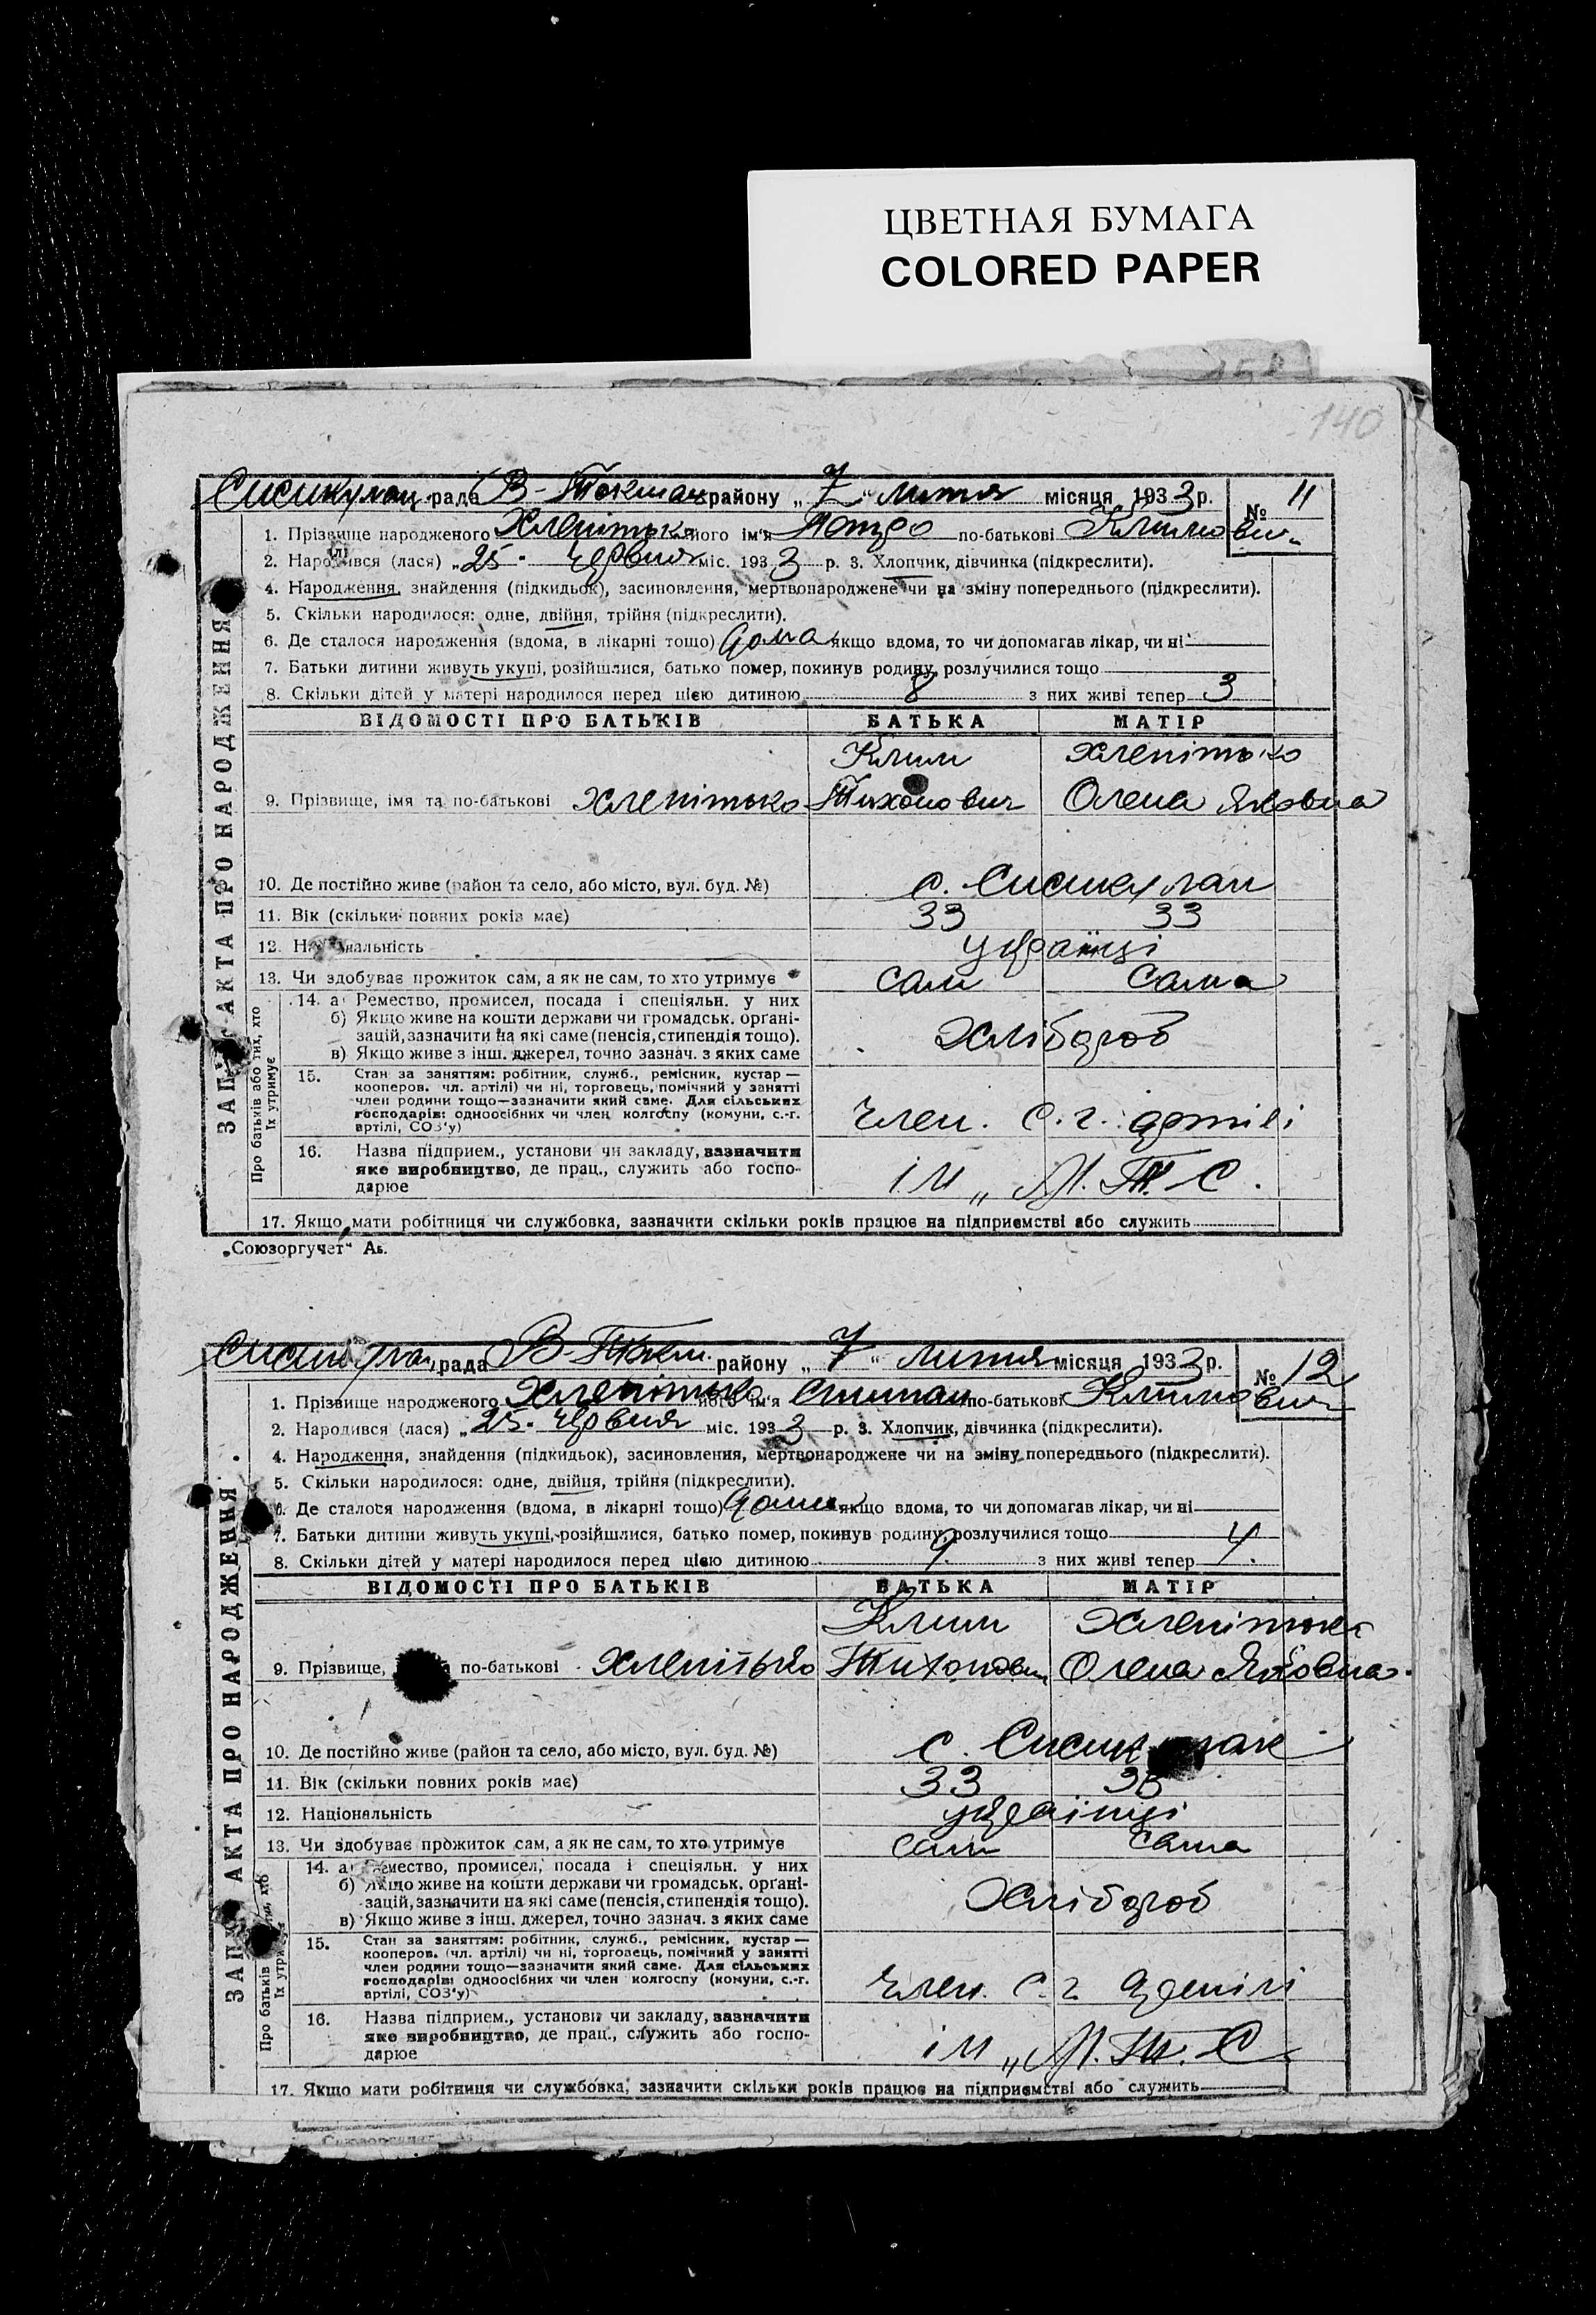 ЦВЕТНАЯ БУМАГА
COLORED PAPER
140
Сисикулац. рада В-Токмак району „7“ липня місяця 1933 р. № 11
1. Прізвище народженого Хлепітько його ім'я Петро по-батькові Климович
2. Народився (лася) „25 червня міс. 1933 р. 3. Хлопчик, дівчинка (підкреслити).
4. Народження, знайдення (підкидьок), засиновлення, мертвонароджене чи на зміну попереднього (підкреслити).
5. Скільки народилося: одне, двійня, трійня (підкреслити).
6. Де сталося народження (вдома, в лікарні тощо) дома якщо вдома, то чи допомагав лікар, чи ні
7. Батьки дитини живуть укупі, розійшлися, батько помер, покинув родину, розлучилися тощо
8. Скільки дітей у матері народилося перед цією дитиною 8 з них живі тепер 3
ВІДОМОСТІ ПРО БАТЬКІВ БАТЬКА МАТІР
Клим Хлепітько
9. Прізвище, імя та по-батькові Хлепітько Тихонович Олена Яковна
10. Де постійно живе (район та село, або місто, вул. буд. №) с. Сисикулак
11. Вік (скільки повних років має) 33 33
12. Національність українці
13. Чи здобуває прожиток сам, а як не сам, то хто утримує сам сама
14. а) Ремество, промисел, посада і спеціяльн. у них
б) Якщо живе на кошти держави чи громадськ. організацій, зазначити на які саме (пенсія, стипендія тощо).
в) Якщо живе з інш. джерел, точно зазнач. з яких саме
Хлібороб
15. Стан за заняттям: робітник, служб., ремісник, кустар—
кооперов. чл. артілі) чи ні, торговець, помічний у занятті
член родини тощо—зазначити який саме. Для сільських
господарів: одноосібних чи член колгоспу (комуни, с.-г.
артілі, СОЗ'у)
Член. с. г. артілі
16. Назва підприєм., установи чи закладу, зазначити
яке виробництво, де прац., служить або господарює
ім „М.Т.С.
17. Якщо мати робітниця чи службовка, зазначити скільки років працює на підприємстві або служить
ЗАПИС АКТА ПРО НАРОДЖЕННЯ
Про батьків або тих, хто їх утримує
„Союзоргучет“
рада В-Токм. району „7“ липня місяця 1933 р. № 12
1. Прізвище народженого Хлепітько його ім'я Степан по-батькові Климович
2. Народився (лася) „25. червня міс. 1933 р. 3. Хлопчик, дівчинка (підкреслити).
4. Народження, знайдення (підкидьок), засиновлення, мертвонароджене чи на зміну попереднього (підкреслити).
5. Скільки народилося: одне, двійня, трійня (підкреслити).
6. Де сталося народження (вдома, в лікарні тощо) дома якщо вдома, то чи допомагав лікар, чи ні
7. Батьки дитини живуть укупі, розійшлися, батько помер, покинув родину, розлучилися тощо
8. Скільки дітей у матері народилося перед цією дитиною 9. з них живі тепер 4.
ВІДОМОСТІ ПРО БАТЬКІВ БАТЬКА МАТІР
Клим Хлепітько
9. Прізвище, по-батькові Хлепітько Тихонович Олена Яковна
10. Де постійно живе (район та село, або місто, вул. буд. №) с.
11. Вік (скільки повних років має) 33
12. Національність українці
13. Чи здобуває прожиток сам, а як не сам, то хто утримує сам сама
14. а) Ремество, промисел, посада і спеціяльн. у них
б) Якщо живе на кошти держави чи громадськ. організацій, зазначити на які саме (пенсія, стипендія тощо).
в) Якщо живе з інш. джерел, точно зазнач. з яких саме
Хлібороб
15. Стан за заняттям: робітник, служб., ремісник, кустар—
кооперов. (чл. артілі) чи ні, торговець, помічний у занятті
член родини тощо—зазначити який саме. Для сільських
господарів: одноосібних чи член колгоспу (комуни, с.-г.
артілі, СОЗ'у)
Член. с. г артілі
16. Назва підприєм., установи чи закладу, зазначити
яке виробництво, де прац., служить або господарює
ім „М.Т.С
17. Якщо мати робітниця чи службовка, зазначити скільки років працює на підприємстві або служить
ЗАПИС АКТА ПРО НАРОДЖЕННЯ